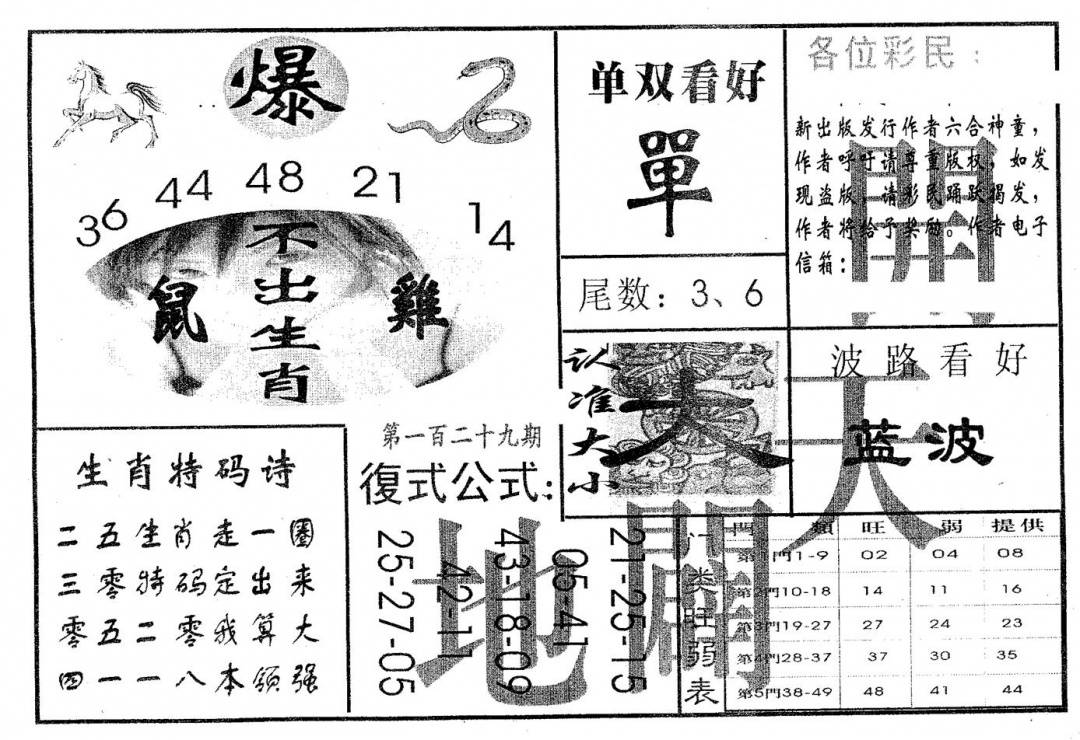 爆
36 44 48 21 14
不出生肖
鼠
雞
单双看好
單
尾数：3、6
各位彩民：
新出版发行作者六合神童，
作者呼吁请尊重版权，如发
现盗版，请彩民踊跃揭发，
作者将给予奖励。作者电子
信箱：
认准大小
大
波路看好
蓝波
開天
闢地
生肖特码诗
二五生肖走一圈
三零特码定出来
零五二零我算大
四一一八本领强
第一百二十九期
復式公式：
25-27-05
42-11
43-18-09
05-41
21-25-15
门类旺弱表
門類 旺 弱 提供
第1門1-9 02 04 08
第2門10-18 14 11 16
第3門19-27 27 24 23
第4門28-37 37 30 35
第5門38-49 48 41 44